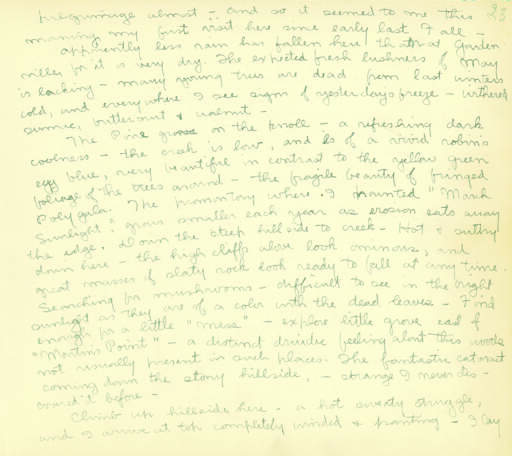 pregrimage almost - and so it seemed to me this 23
morning my first visit here since early last Fall -
apparently less rain has fallen here than at Garden
ville for it is very dry. The expected fresh lushness of May
is lacking - many young trees are dead from last winters
cold, and everywhere I see signs of yesterdays freeze - withered
sumac, butternut & walnut -
The Pine grove on the knoll - a refreshing dark
coolness - the creek is low, and is of a vivid robin's
egg blue, very beautiful in contrast to the yellow green
foliage of the trees around - the fragile beauty of fringed
Polygala. The promontory where I painted "March
Sunlight" grows smaller each year as erosion eats away
the edge. Down the steep hillside to creek - Hot & sultry
down here - the high cliffs above look ominous, and
great masses of slaty rock look ready to fall at any time.
Searching for mushrooms - difficult to see in the bright
sunlight as they are of a color with the dead leaves - Find
enough for a little "mess" - explore little grove east of
"Martins Point" - a distinct druidic feeling about this woods
not usually present in such places. The fantastic cataract
coming down the stony hillside, - strange I never dis-
cover'd it before -
Climb up hillside here - a hot sweaty struggle,
and I arrive at top completely winded & panting - I lay